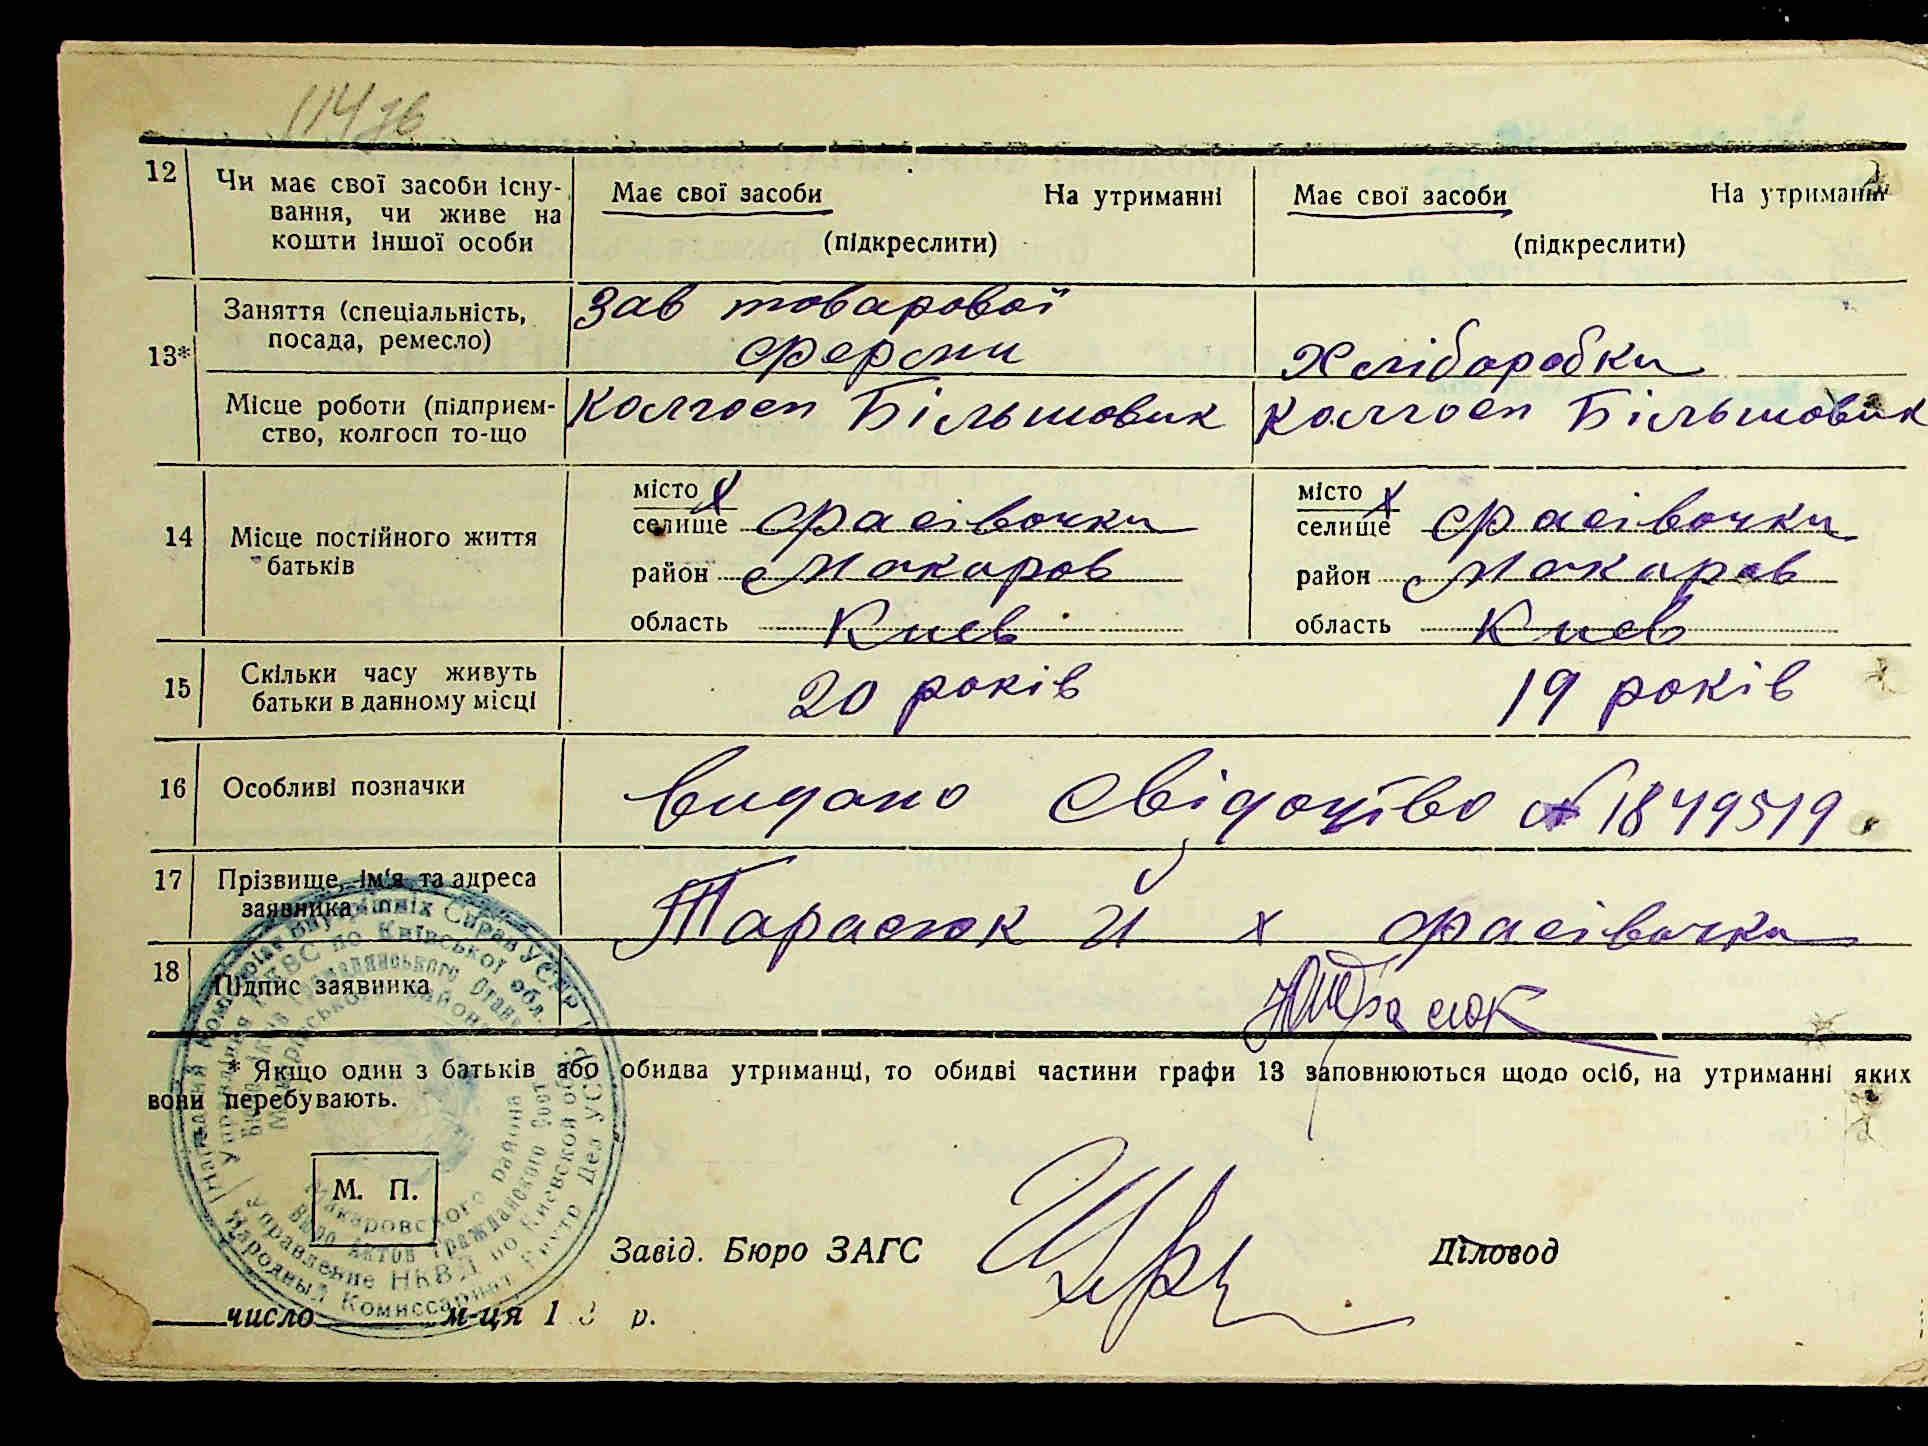 114 зв
12 Чи має свої засоби існу- Має свої засоби На утриманні Має свої засоби На утриманні
вання, чи живе на
кошти іншої особи (підкреслити) (підкреслити)
13* Заняття (спеціальність, Зав товарової
посада, ремесло) ферми Хліборобка
Місце роботи (підприєм- Колгосп Більшовик Колгосп Більшовик
ство, колгосп то-що
14 Місце постійного життя батьків
місто х місто х
селище Фасівочка селище Фасівочка
район Макаров район Макаров
область Киев область Киев
15 Скільки часу живуть 20 років 19 років
батьки в данному місці
16 Особливі позначки видано свідоцтво № 1849519
17 Прізвище, ім'я та адреса
заявника Тарасюк И х Фасівочка
18 Підпис заявника Тарасюк
* Якщо один з батьків або обидва утриманці, то обидві частини графи 13 заповнюються щодо осіб, на утриманні яких
вони перебувають.
М. П.
Завід. Бюро ЗАГС Діловод
число м-ця 193 р.
Внутрішніх Справ УСРР
НКВС по Київської обл.
Громадянського Стану
Макаровского района
Бюро Актов Гражданского Сост
Управление НКВД по Киевской обл
Народный Комиссариат Внутр Дел УССР